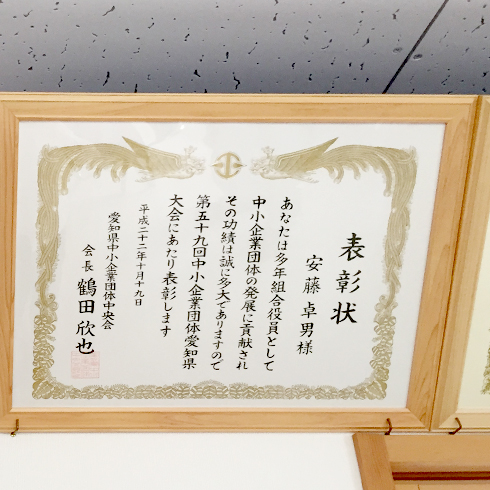 表彰状
安藤卓男様
あなたは多年組合役員として
中小企業団体の発展に貢献され
その功績は誠に多大でありますので
第五十九回中小企業団体愛知県
大会にあたり表彰します
平成二十二年十月十九日
愛知県中小企業団体中央会
会長 鶴田欣也